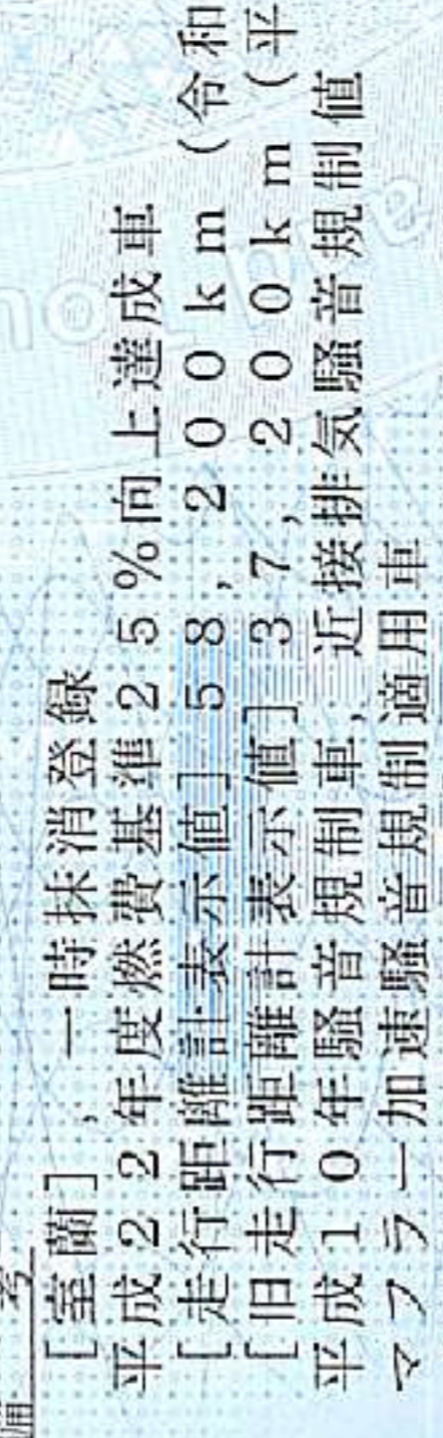 備 考
[室蘭], 一時抹消登録
平成22年度燃費基準25%向上達成車
[走行距離計表示値] 58,200km (令和
[旧走行距離計表示値] 37,200km (平
平成10年騒音規制車, 近接排気騒音規制値
マフラー加速騒音規制適用車